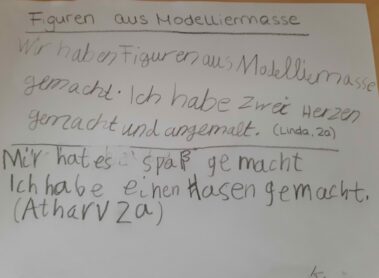 Figuren aus Modelliermasse
Wir haben Figuren aus Modelliermasse
gemacht. Ich habe zwei Herzen
gemacht und angemalt. (Linda, 2a)
Mir hat es spaß gemacht
Ich habe einen Hasen gemacht.
(Atharv 2a)